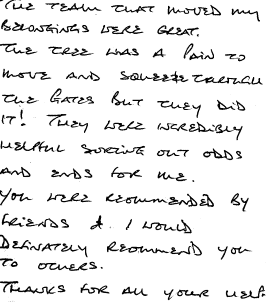 THE TEAM THAT MOVED MY
BELONGINGS WERE GREAT.
THE TREE WAS A PAIN TO
MOVE AND SQUEEZE THROUGH
THE GATES BUT THEY DID
IT! THEY WERE INCREDIBLY
HELPFUL SORTING OUT ODDS
AND ENDS FOR ME.
YOU WERE RECOMMENDED BY
FRIENDS & I WOULD
DEFINATELY RECOMMEND YOU
TO OTHERS.
THANKS FOR ALL YOUR HELP